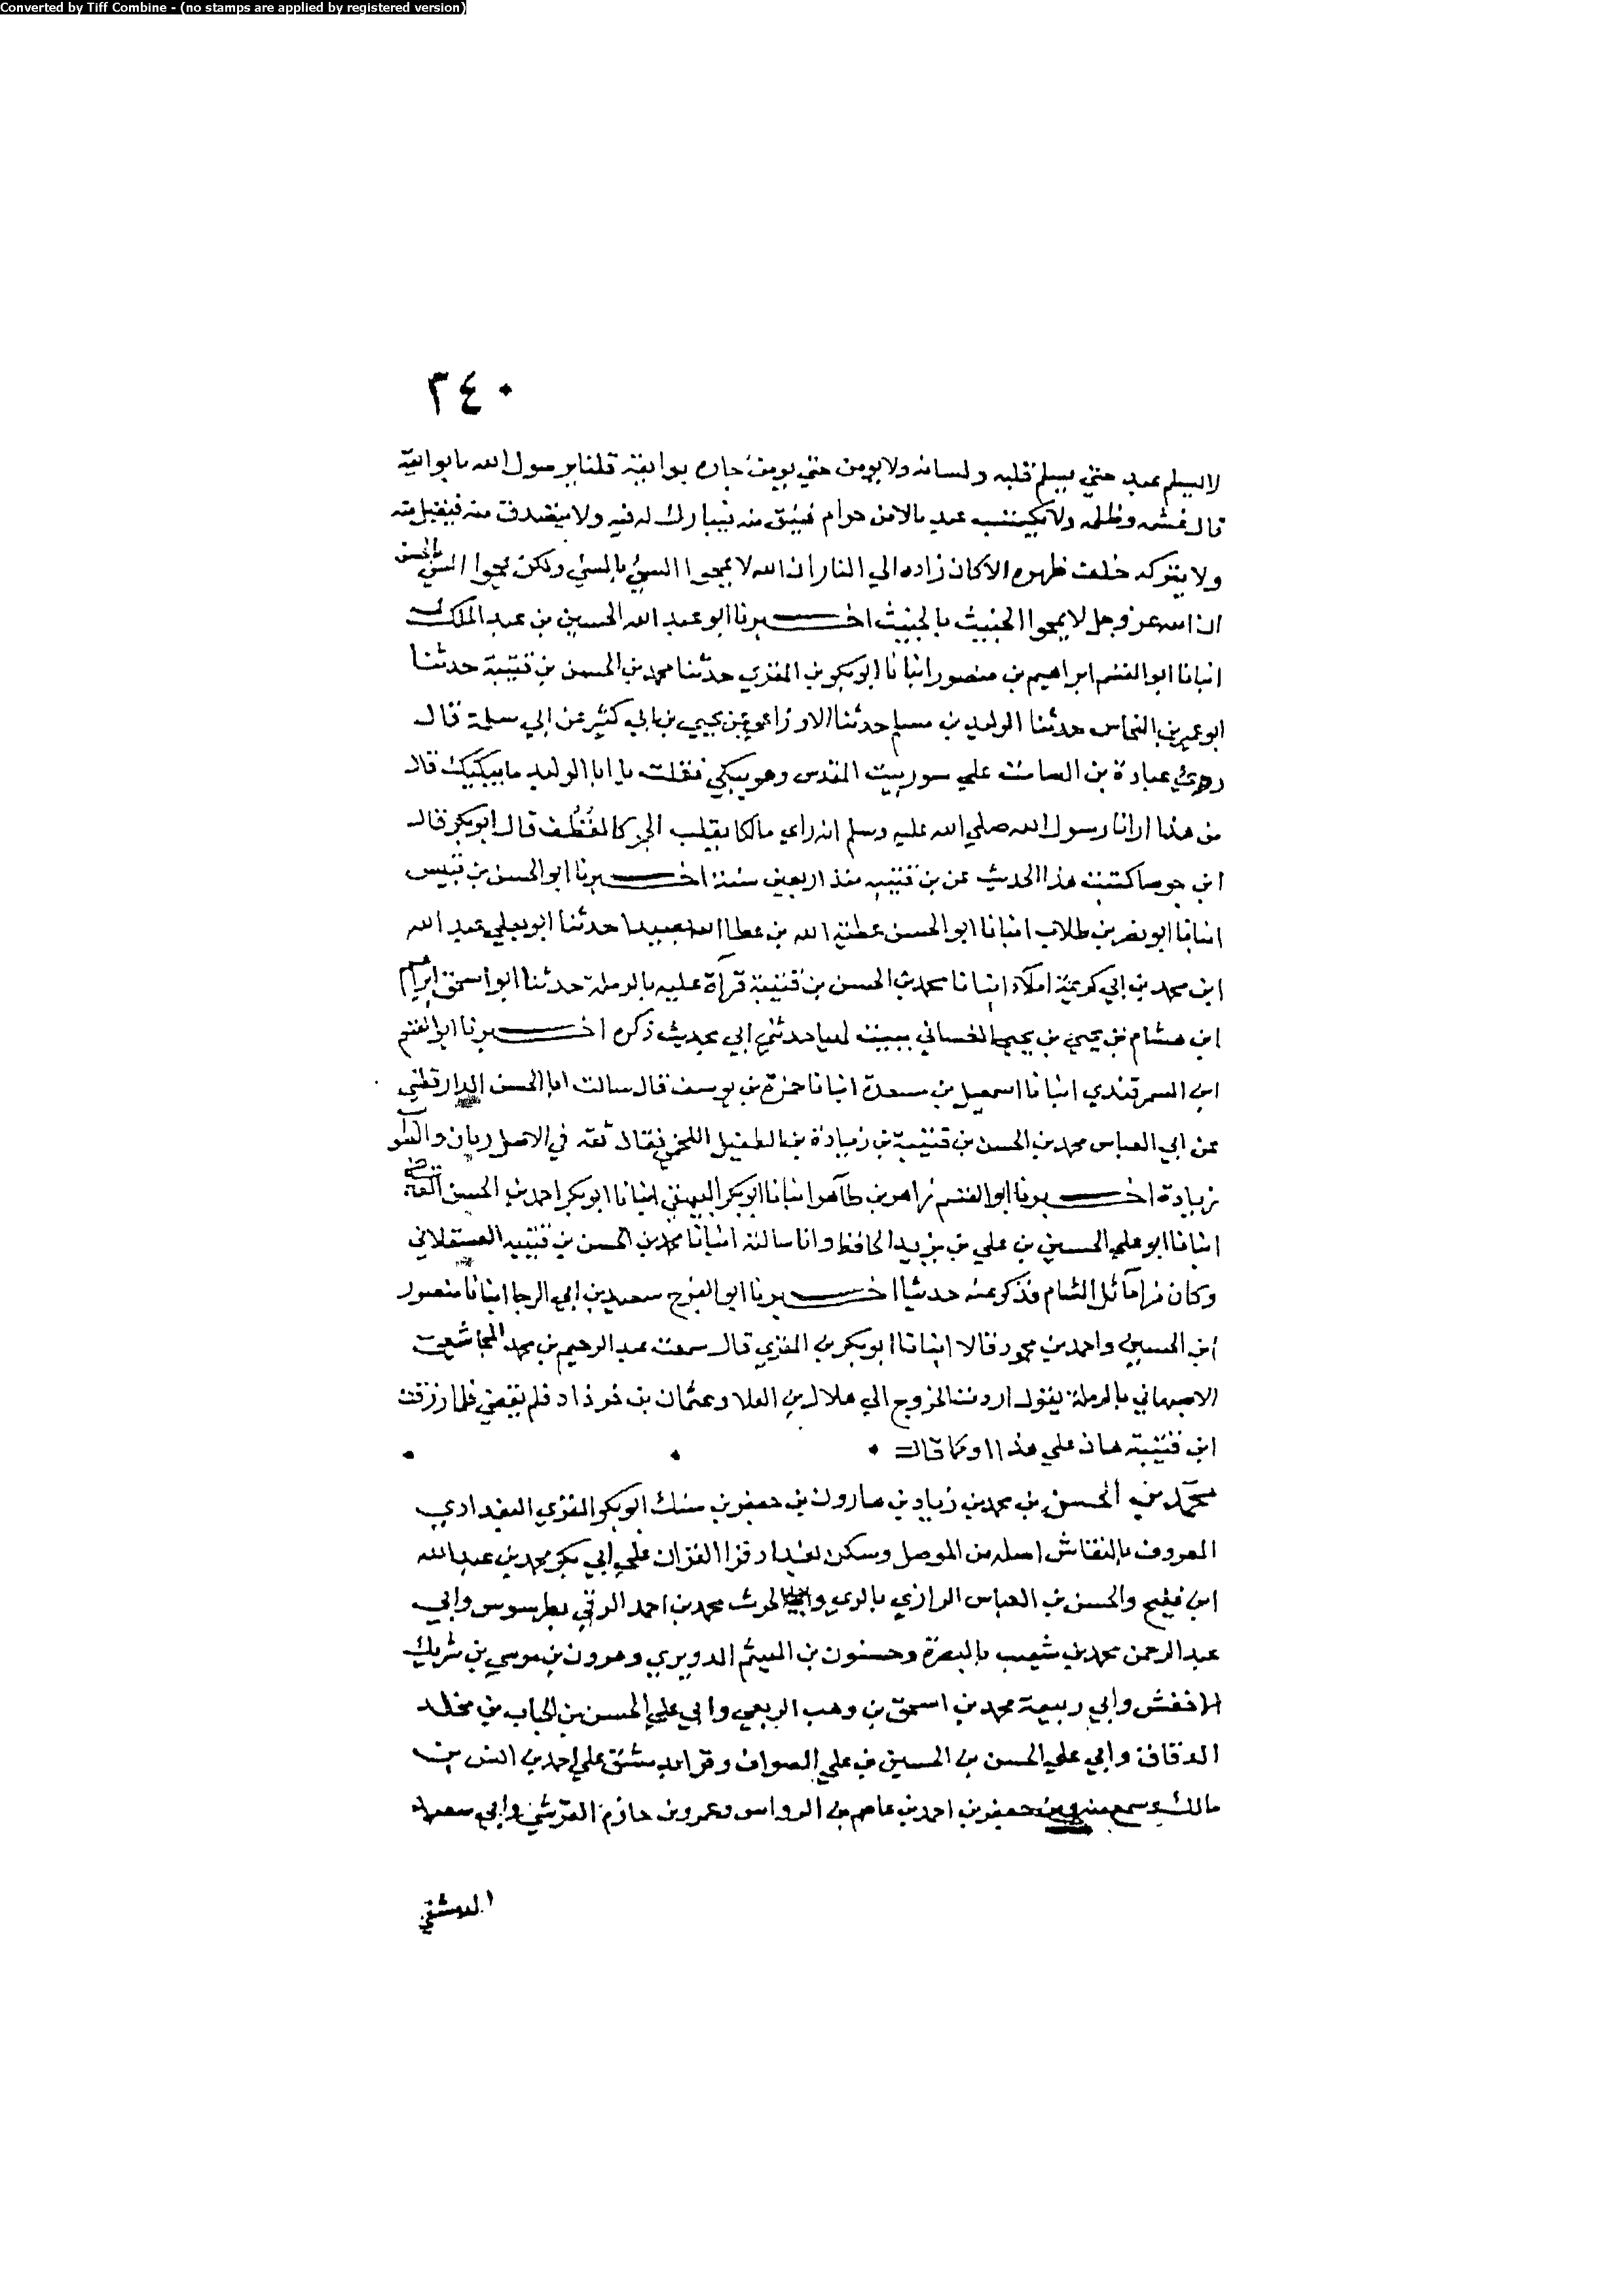 Converted by Tiff Combine - (no stamps are applied by registered version)
٣٤٠
لا يسلم عبد حتي يسلم قلبه ولسانه ولا يومن حتي يومن جاره بوايقه قلنا يرسول الله ما بوايقه
قال غشه وظلمه ولا يكتسب عبد مالا من حرام فينفق منه فيبارك له فيه ولا يتصدق منه فيتقبل منه
ولا يتركه خلف ظهره الا كان زاده الي النار ان الله لا يمحوا السيئ بالسيئ ولكن يمحوا السيئ بالحسن
ان الله عز وجل لا يمحوا الخبيث بالخبيث اخبرنا ابو عبد الله الحسين بن عبد الملك
انبانا ابو القسم ابراهيم بن منصور انبانا ابو بكر بن المقري حدثنا محمد بن الحسن بن قتيبة حدثنا
ابو عمير بن النحاس حدثنا الوليد بن مسلم حدثنا الاوزاعي عن يحيي بن ابي كثير عن ابي سلمة قال
رءي عبادة بن الصامت علي سور بيت المقدس وهو يبكي فقلت يا ابا الوليد ما يبكيك قال
من هذا ارانا رسول الله صلي الله عليه وسلم انه راي مالكا يقلب الجمر كالقُطُف قال ابو بكر قال
ابن جوصا كتبت هذا الحديث عن بن قتيبه منذ اربعين سنة اخبرنا ابو الحسن بن قبيس
انبانا ابو نصر بن طلاب انبانا ابو الحسن عطية الله بن عطا الله بصيدا حدثنا ابو يعلي عبد الله
ابن محمد بن ابي كريمة املآء انبانا محمد بن الحسن بن قتيبة قرآة عليه بالرملة حدثنا ابو اسحق ابراهيم
ابن هشام بن يحيي بن يحيي الغساني ببيت لهيا حدثني ابي بحديث ذكره اخبرنا ابو القسم
ابن السمرقندي انبانا اسمعيل بن مسعدة انبانا حمزة بن يوسف قال سالت ابا الحسن الدارقطني
عن ابي العباس محمد بن الحسن بن قتيبة بن زيادة بن الطفيل اللخمي فقال ثقه في الاصل ريان والصو
زيادة اخبرنا ابو القسم زاهر بن طاهر انبانا ابو بكر البيهقي انبانا ابو بكر احمد بن الحسين القاضي
انبانا ابو علي الحسين بن علي بن يزيد الحافظ وانا سالته انبانا محمد بن الحسن بن قتيبه العسقلاني
وكان من اماثل الشام فذكر عنه حدثيا اخبرنا ابو الفرج سعيد بن ابي الرجا انبانا منصور
ابن الحسين واحمد بن محمود قالا انبانا ابو بكر بن المقري قال سمعت عبد الرحيم بن محمد المجاشعي
الاصبهاني بالرملة يقول اردت الخروج الي هلال بن العلا وعثمان بن خرذاد فلم يقض فلما رزقت
ابن قتيبة هان علي هذا او كما قال
محمد بن الحسن بن محمد بن زياد بن هارون بن جعفر بن سند ابو بكر المقري البغدادي
المعروف بالنقاش اصله من الموصل وسكن بغداد قرا القران علي ابي بكر محمد بن عبد الله
ابن فليح والحسن بن العباس الرازي بالري وابي الحرث محمد بن احمد الرقي بطرسوس وابي
عبد الرحمن محمد بن شعيب بالبصرة وحسنون بن الهيثم الدويري وهرون بن موسي بن شريك
الاخفش وابي ربيعة محمد بن اسحق بن وهب الربعي وابي علي الحسن بن الحباب بن مخلد
الدقاق وابي علي الحسن بن الحسين بن علي الصواف وقرا بدمشق علي احمد بن انس بن
مالك وسمع منه ومن جعفر بن احمد بن عاصم بن الرواس وعمرو بن حازم القرشي وابي سعيد
الدمشقي